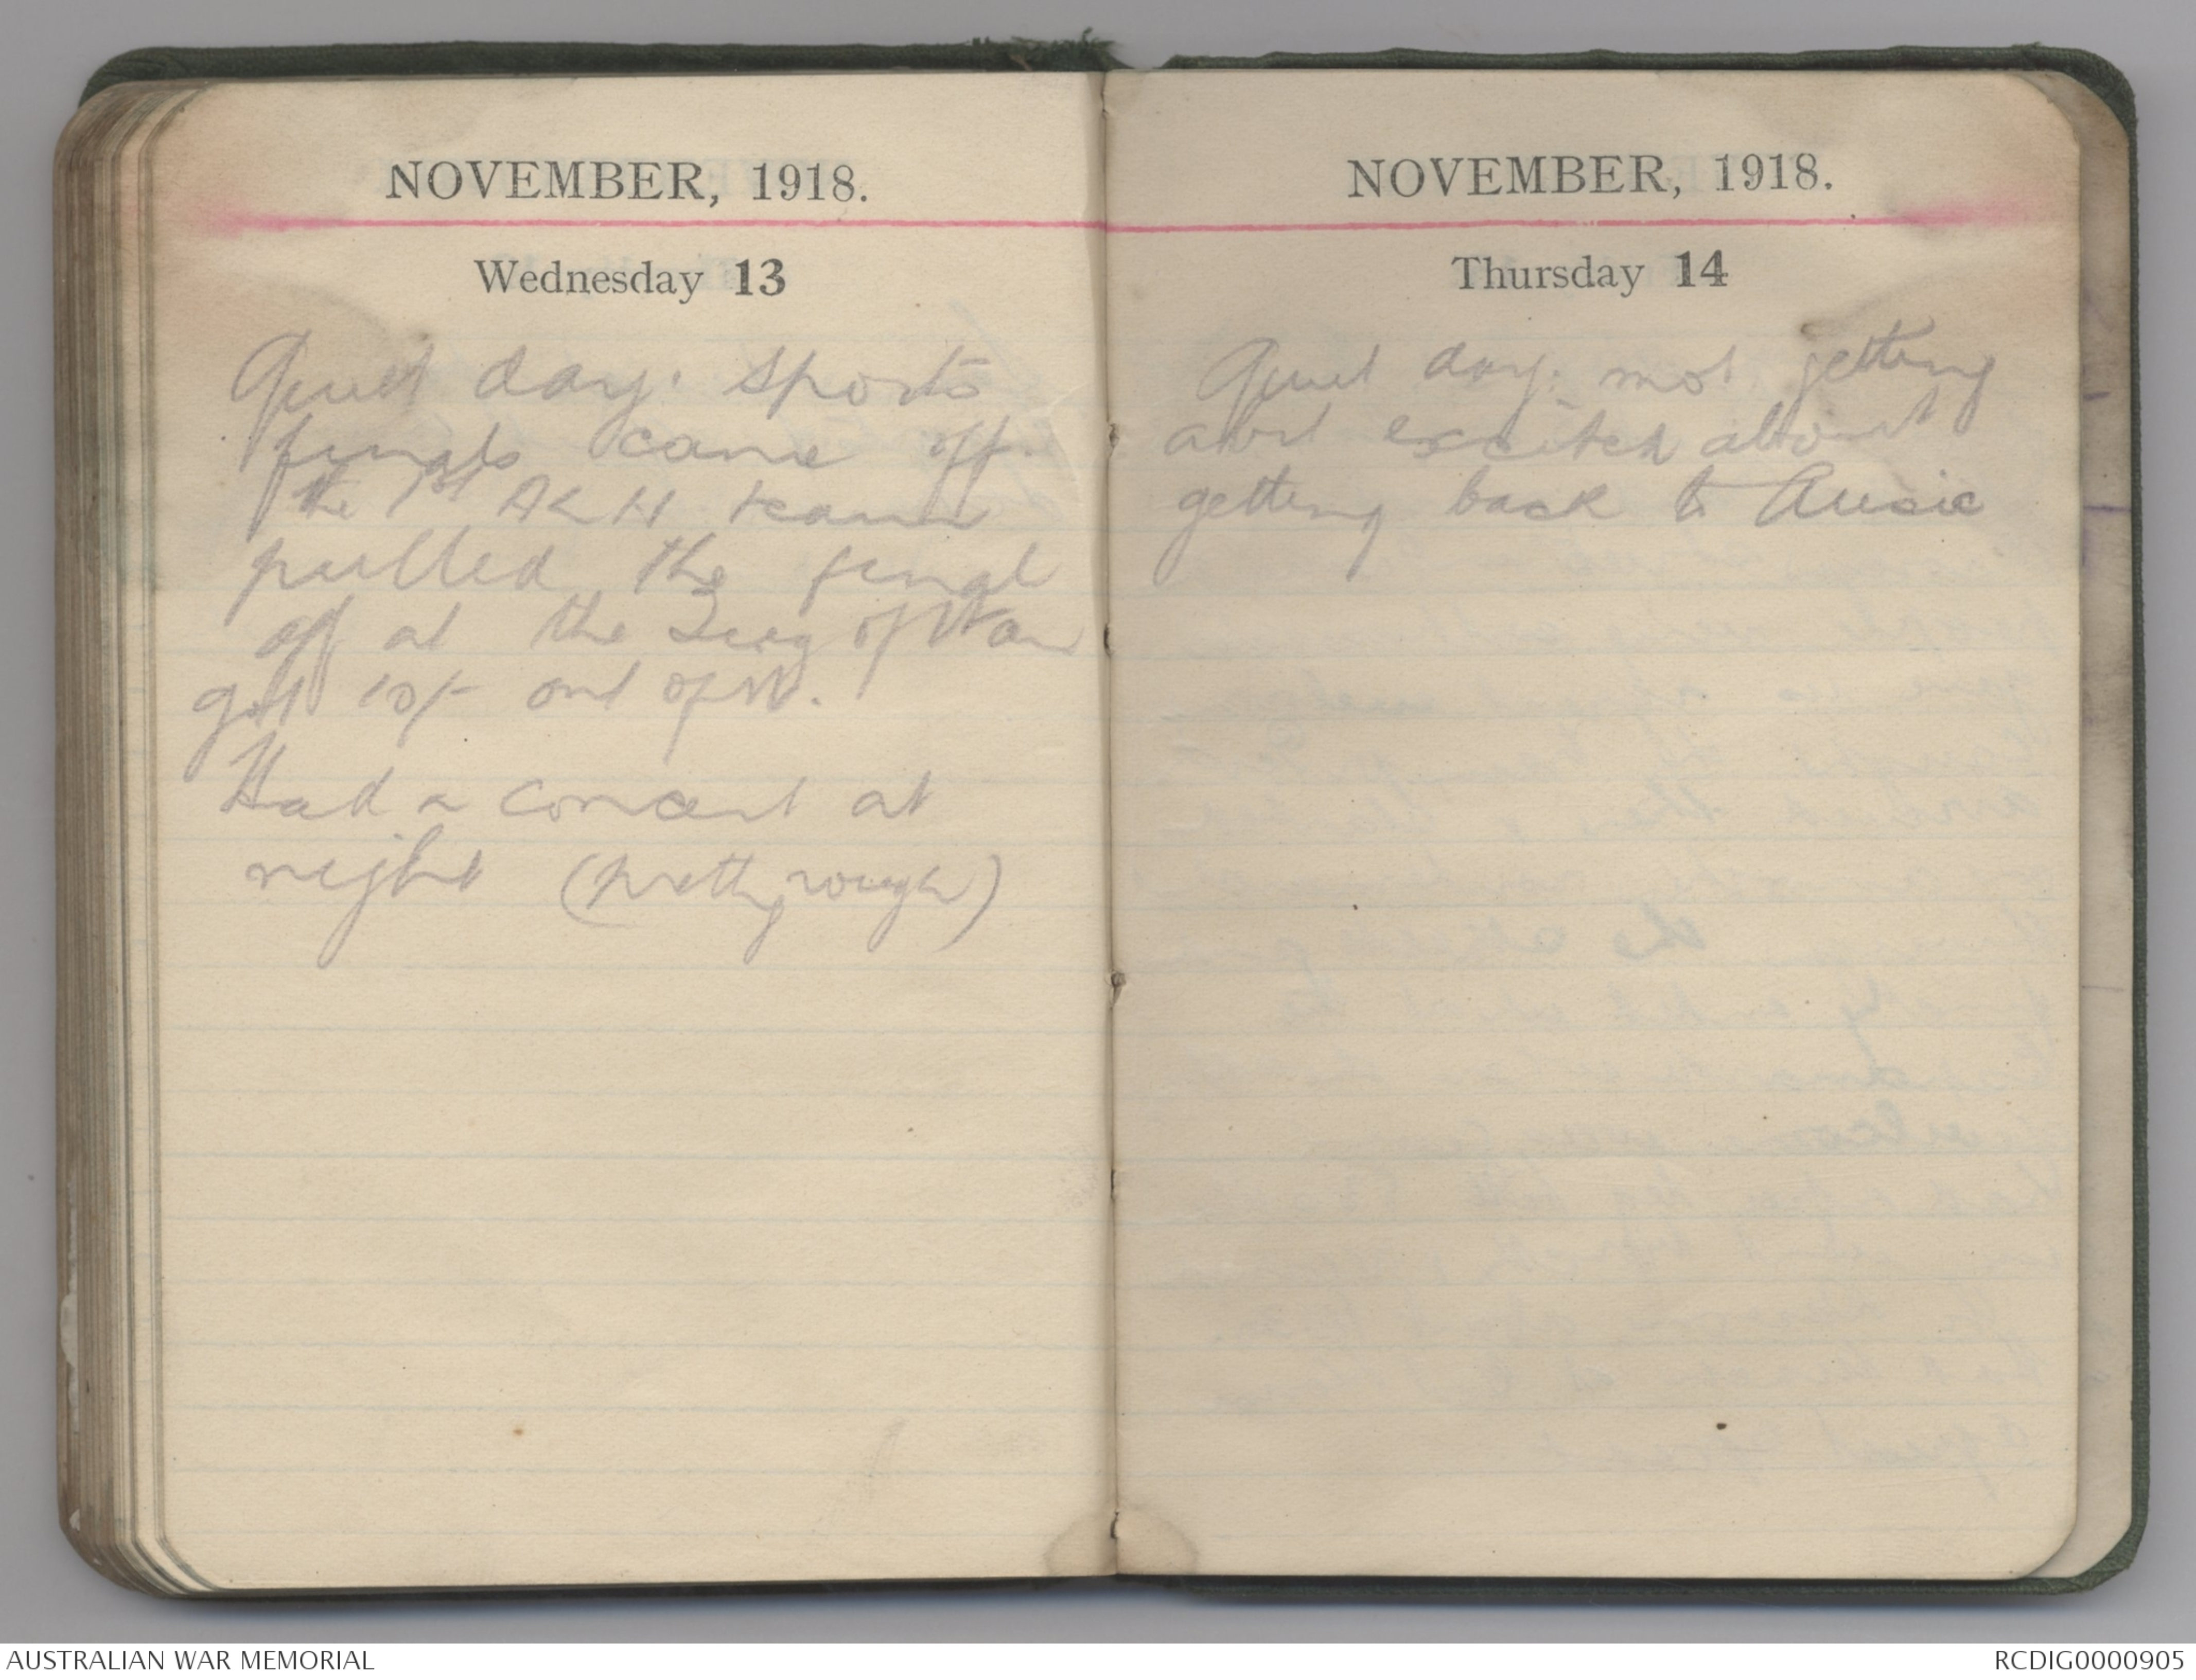 NOVEMBER, 1918.
Wednesday 13
Quiet day. Sports
finals came off.
the 1st ALH team
pulled the final
off at the Tug of War
got 10/- out of it.
Had a concert at
night (pretty rough)
NOVEMBER, 1918.
Thursday 14
Quiet day. mob getting
excited about
getting back to Ausie
AUSTRALIAN WAR MEMORIAL
RCDIG0000905